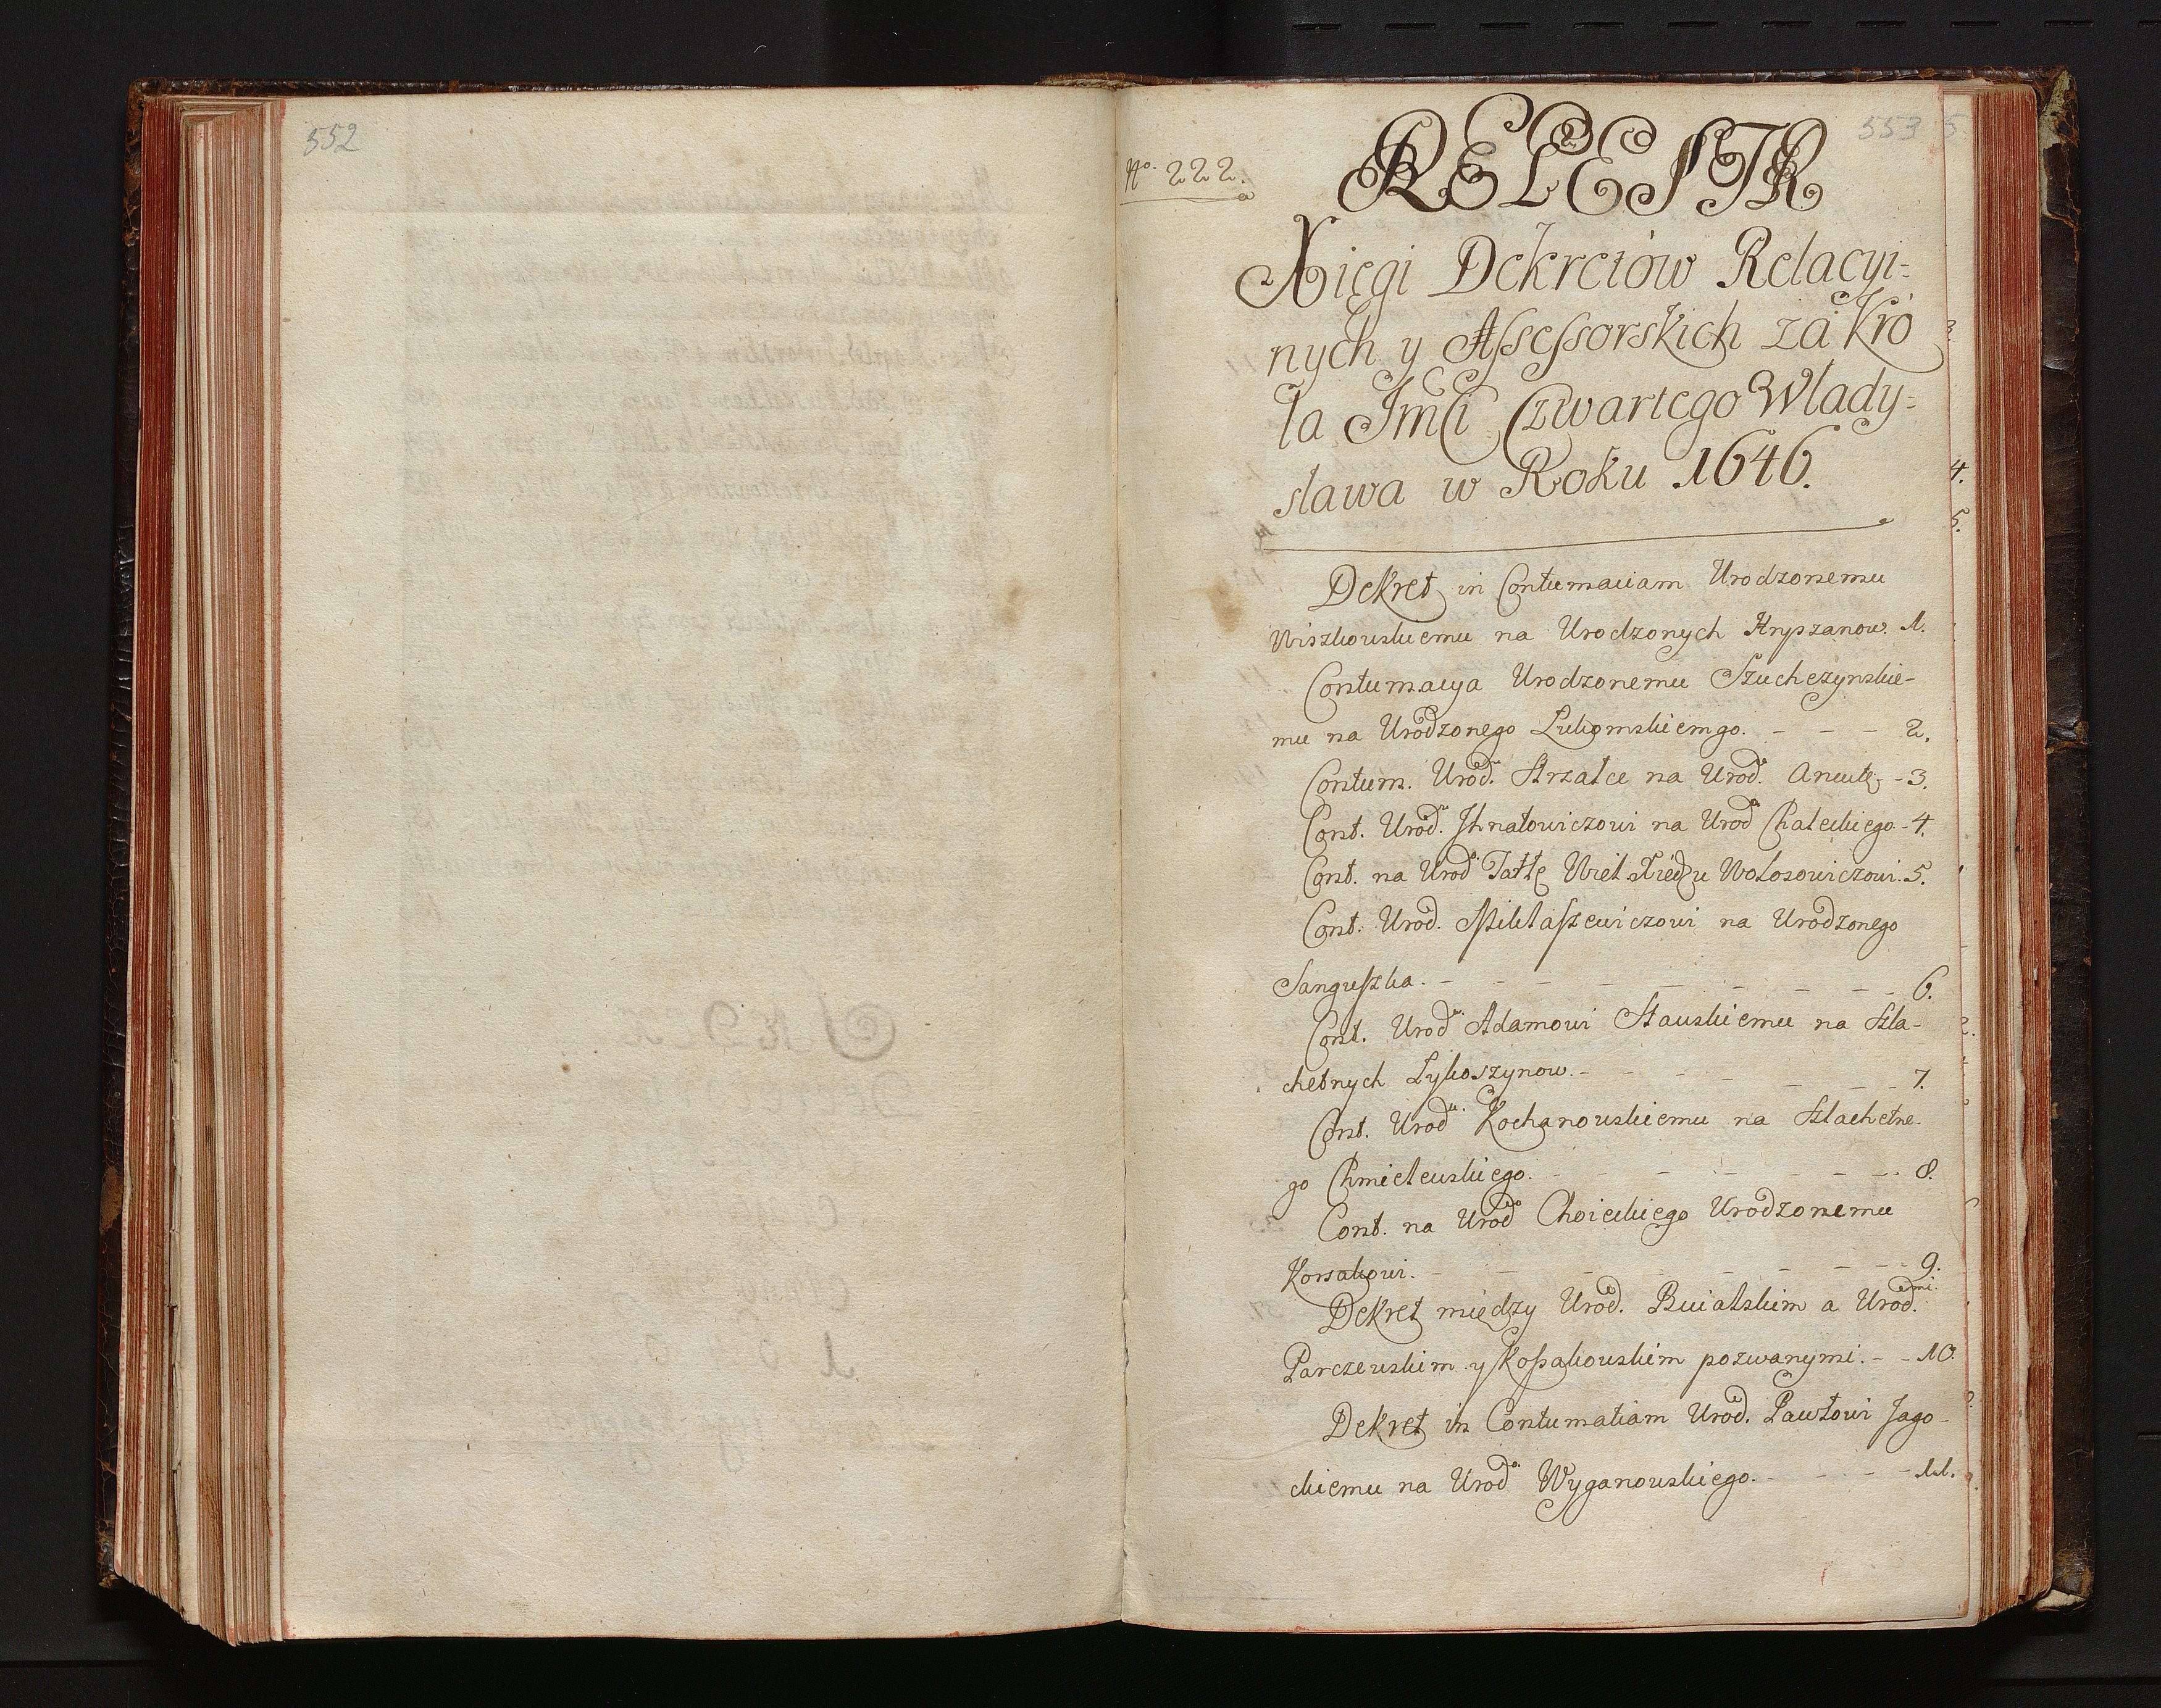 552
553
No. 222.
REIESTR
Xięgi Dekretów Relacyi=
nych y Assessorskich za Kró
la Jmci Czwartego Wlady=
sława w Roku 1646.
Dekret in Contumaciam Urodzonemu
Wiszkowskiemu na Urodzonych Hryszanow. 1.
Contumacya Urodzonemu Szuchczynskie-
mu na Urodzonego Lukomskiemgo. - - - 2.
Contum. Urod. Strzałce na Urod. Ancutę - 3.
Cont. Urod. Ihnatowiczowi na Urod Chaleckiego - 4.
Cont. na Urod Tatlę Wiel Xiędzu Wołosowiczowi. 5.
Cont. Urod. Mikłaszewiczowi na Urodzonego
Sanguszka. - - - - - - - - 6.
Cont. Urod Adamowi Stawskiemu na Szla-
chetnych Lykoszynow. - - - - - - 7.
Cont. Urod Kochanowskiemu na Szlachetne-
go Chmielewskiego. - - - - - - 8.
Cont. na Urod Choieckiego Urodzonemu
Korsakowi. - - - - - - - - 9.
Dekret między Urod. Bwialskim a Urod.mi
Parczewskim y Kossakowskim pozwanymi. - - 10.
Dekret in Contumatiam Urod. Pawłowi Jago-
ckiemu na Urod Wyganowskiego. - - - - 11.
4.
5.